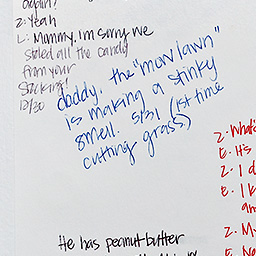 Z: Yeah
L: Mommy, I'm sorry we
stoled all the candy
from your
stocking!
12/30
daddy, the "mow lawn"
is making a stinky
smell. 5/31 (1st time
cutting grass)
Z: What's
E: It's
Z: I d
E: I k
an
Z: M
E: No
He has peanut butter